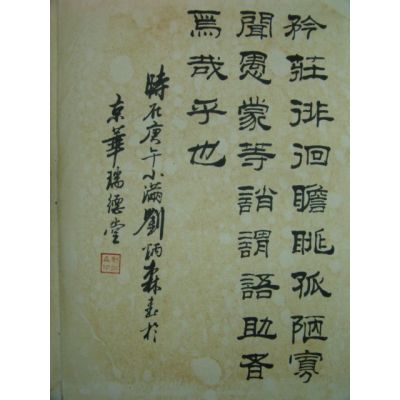 矜莊徘徊瞻眺孤陋寡
聞愚蒙等誚謂語助者
焉哉乎也
時在庚午小滿劉炳森書於
京華瑞德堂